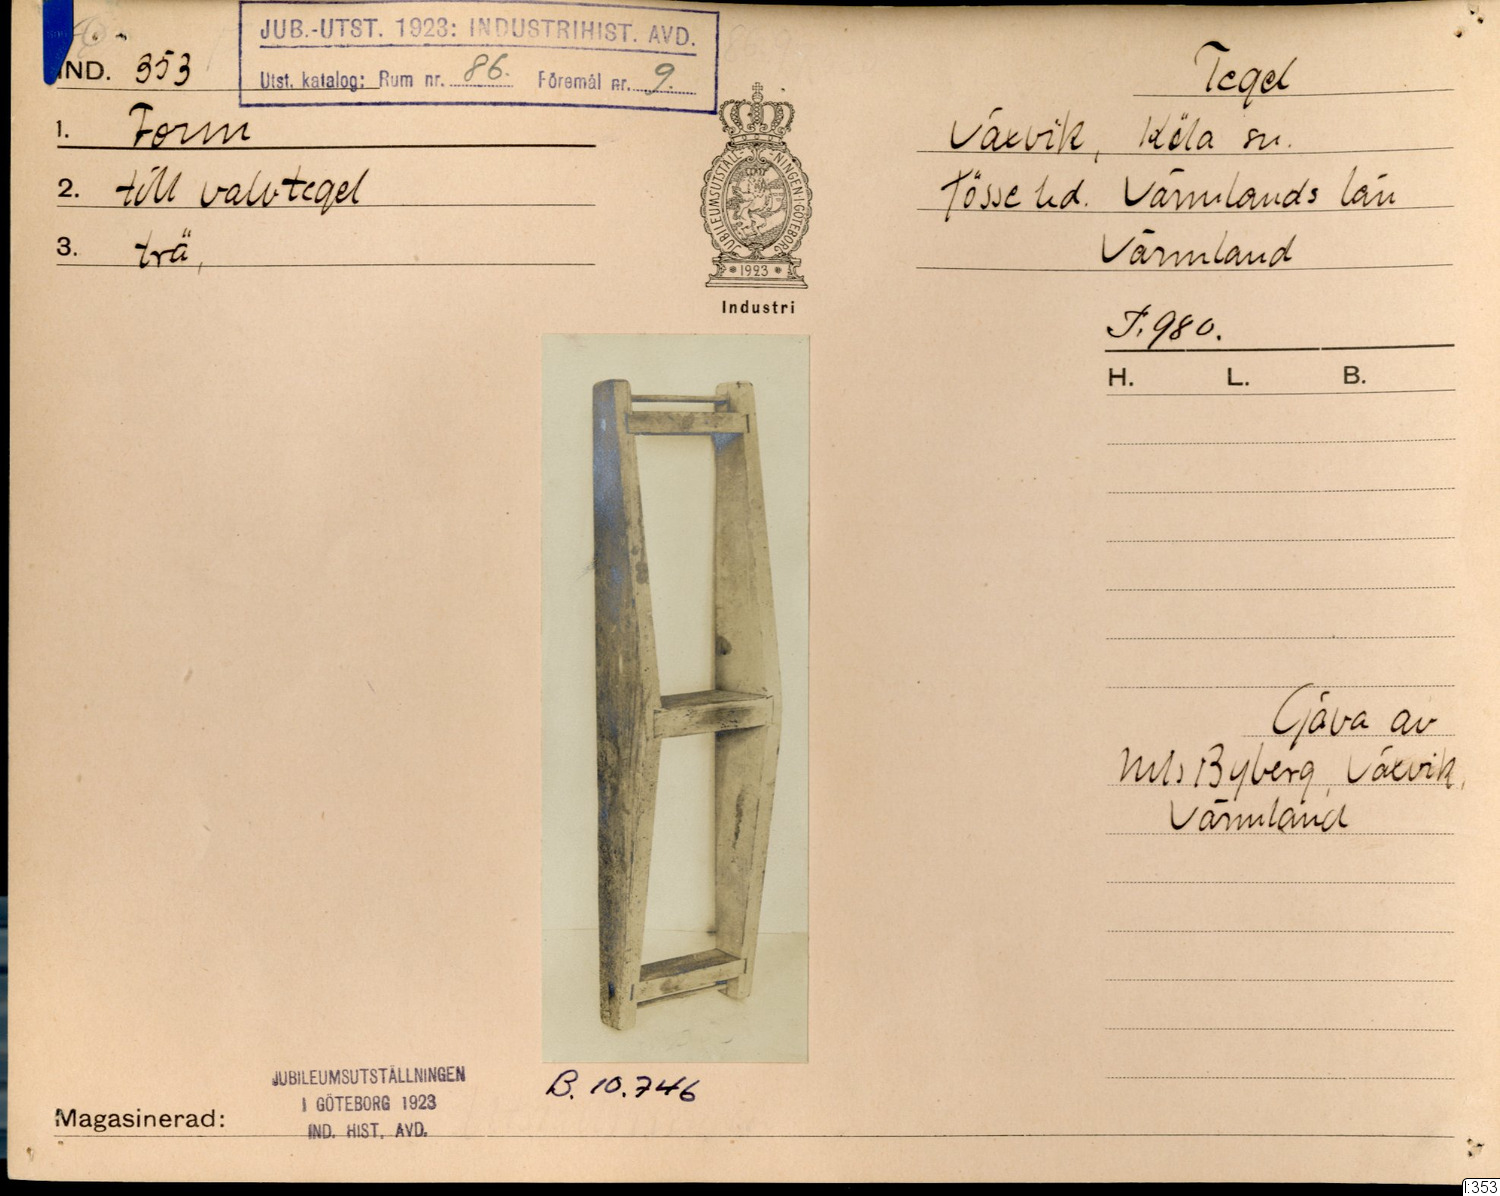 JUB.-UTST. 1923: INDUSTRIHIST. AVD.
Utst. katalog: Rum nr. 86. Föremål nr. 9.
IND. 353
1. Form
2. till valvtegel
3. trä,
JUBILEUMSUTSTÄLLNINGEN·I·GÖTEBORG
1923
Industri
Tegel
Växvik, Köla sn.
Jösse hd. Värmlands län
Värmland
F. 980.
H. L. B.
Gåva av
Nils Byberg, Växvik,
Värmland
B. 10.746
JUBILEUMSUTSTÄLLNINGEN
I GÖTEBORG 1923
IND. HIST. AVD.
Magasinerad:
I:353